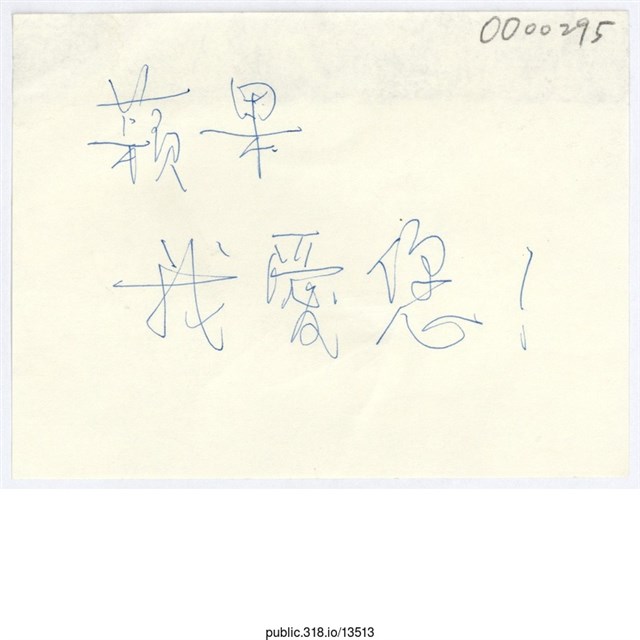 0000295
蘋果
我愛您!
public.318.io/13513